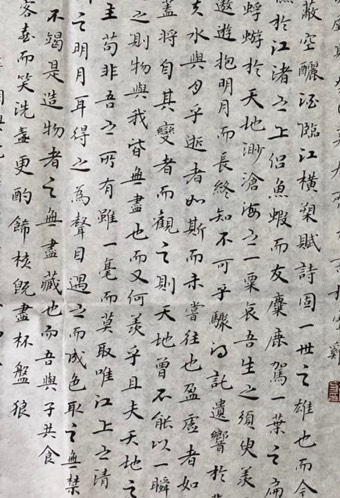 蔽空釃酒臨江橫槊賦詩固一世之雄也而今
樵於江渚之上侶魚蝦而友麋鹿駕一葉之扁
蜉蝣於天地渺滄海之一粟哀吾生之須臾羨
遨遊抱明月而長終知不可乎驟得託遺響於
夫水與月乎逝者如斯而未嘗往也盈虛者如
蓋將自其變者而觀之則天地曾不能以一瞬
之則物與我皆無盡也而又何羨乎且夫天地之
主苟非吾之所有雖一毫而莫取唯江上之清
之明月耳得之為聲目遇之而成色取之無禁
不竭是造物者之無盡藏也而吾與子共食
客喜而笑洗盞更酌餚核既盡杯盤狼